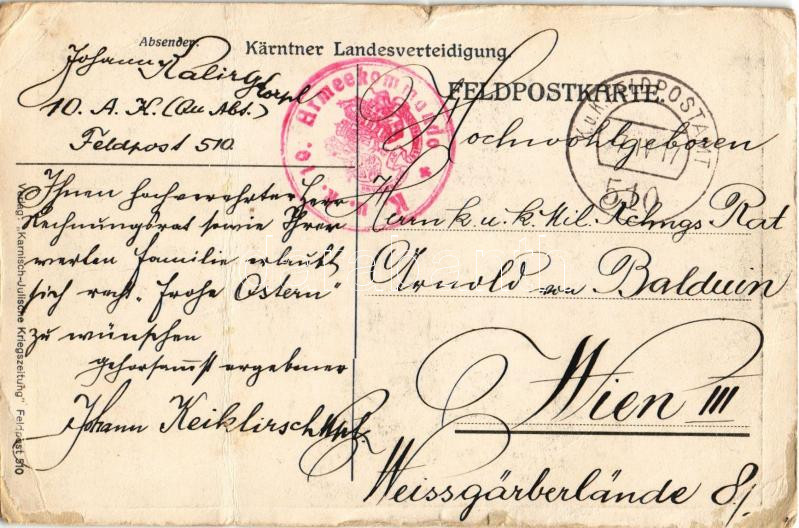 Absender:
Kärntner Landesverteidigung.
FELDPOSTKARTE.
Johann
Corpl
10. A. K. (Qu. Abt.)
Feldpost 510
K. u. k. 10. Armeekommando
K.u.K. FELDPOSTAMT
IV 17
510
Ihnen hochverehrter Herr
Rechnungsrat sowie Ihrer
werten Familie erlaubt
sich recht „Frohe Ostern"
zu wünschen
gehorsamst ergebener
Johann
Hochwohlgeboren
Herrn k. u. k. Mil. Rchngs Rat
Arnold von Balduin
Wien III
Weissgärberlände 8/
Verlag: „Karnisch-Julische Kriegszeitung" Feldpost 510